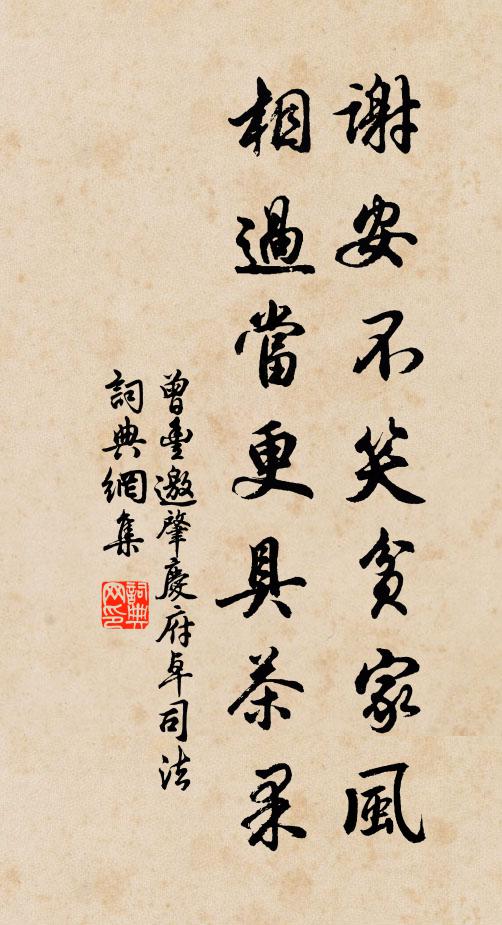 謝安不笑貧家風
相過當更具茶果
曾豐邀肇慶府卓司法
詞典網集
詞典網印